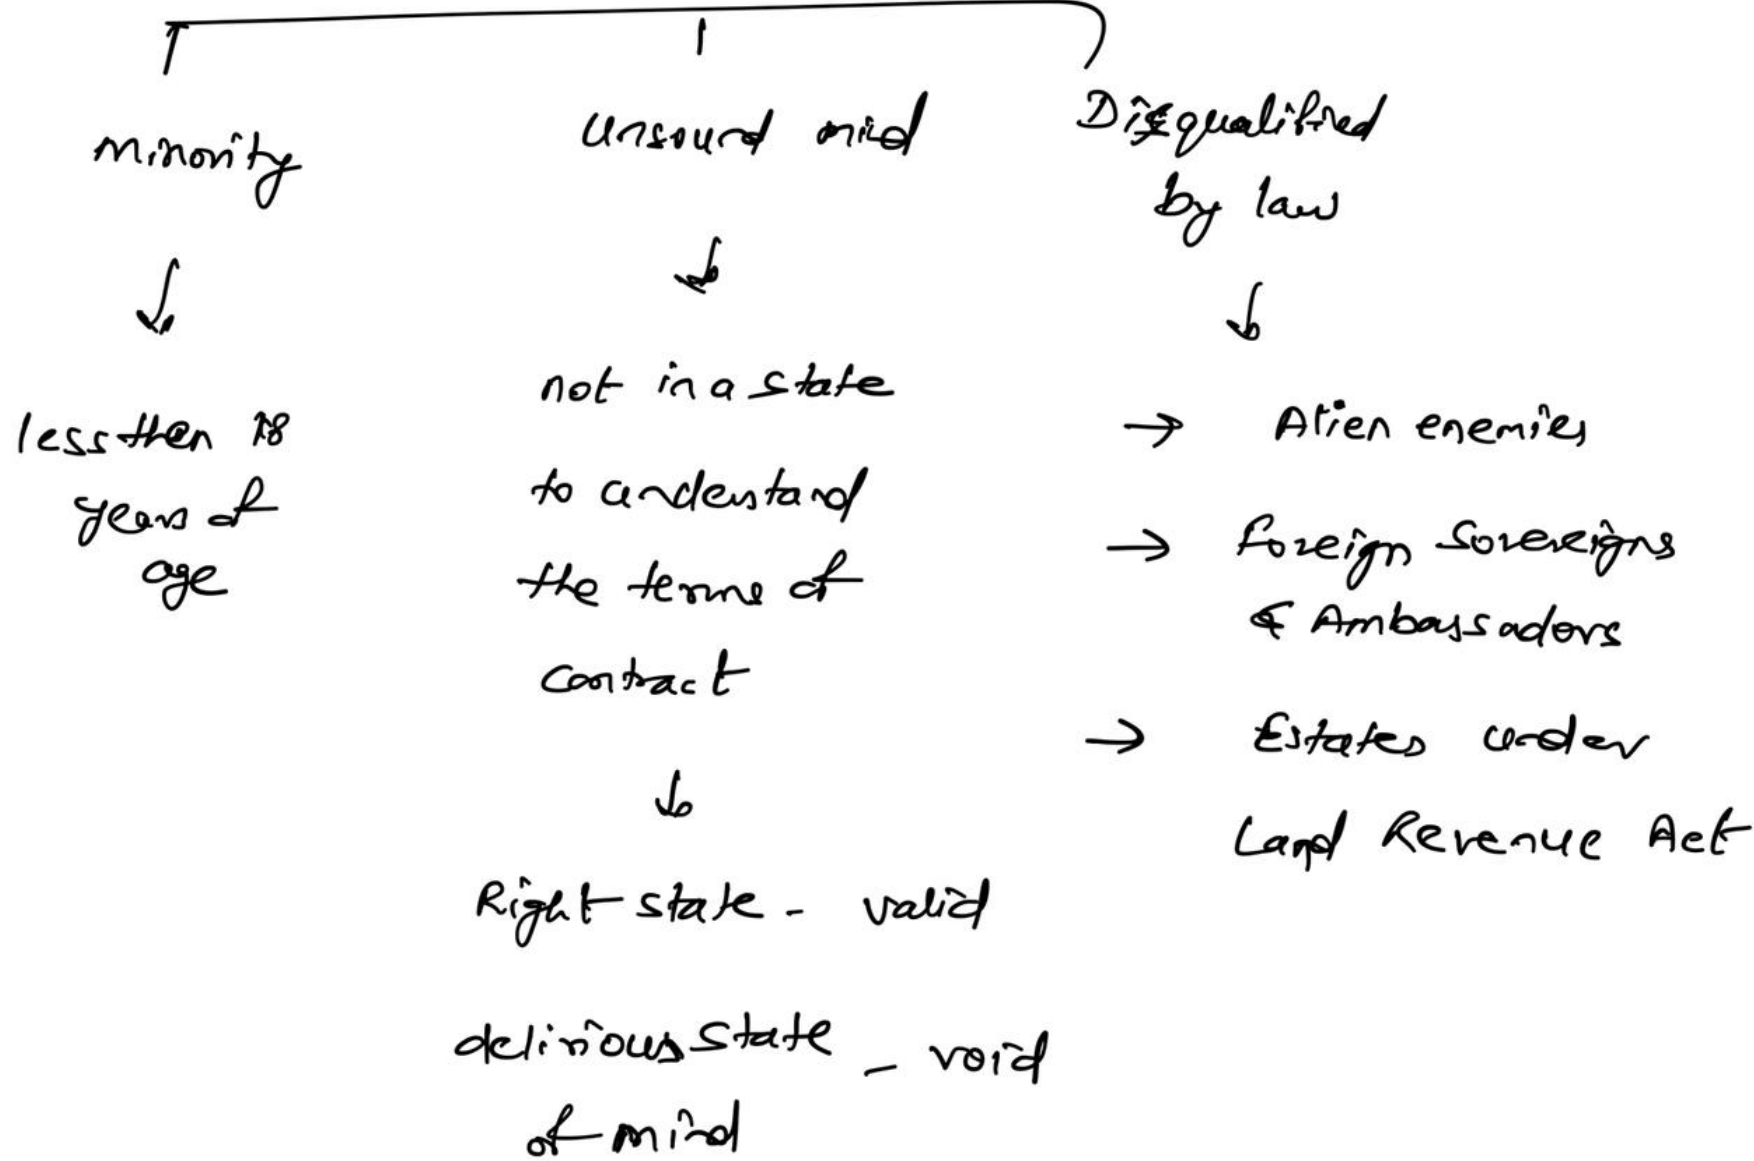 minority
less then 18
years of
age
unsound mind
not in a state
to understand
the terms of
contract
Right state - valid
delirious state - void
of mind
Disqualified
by law
→ Alien enemies
→ foreign Sovereigns
& Ambassadors
→ Estates under
Land Revenue Act